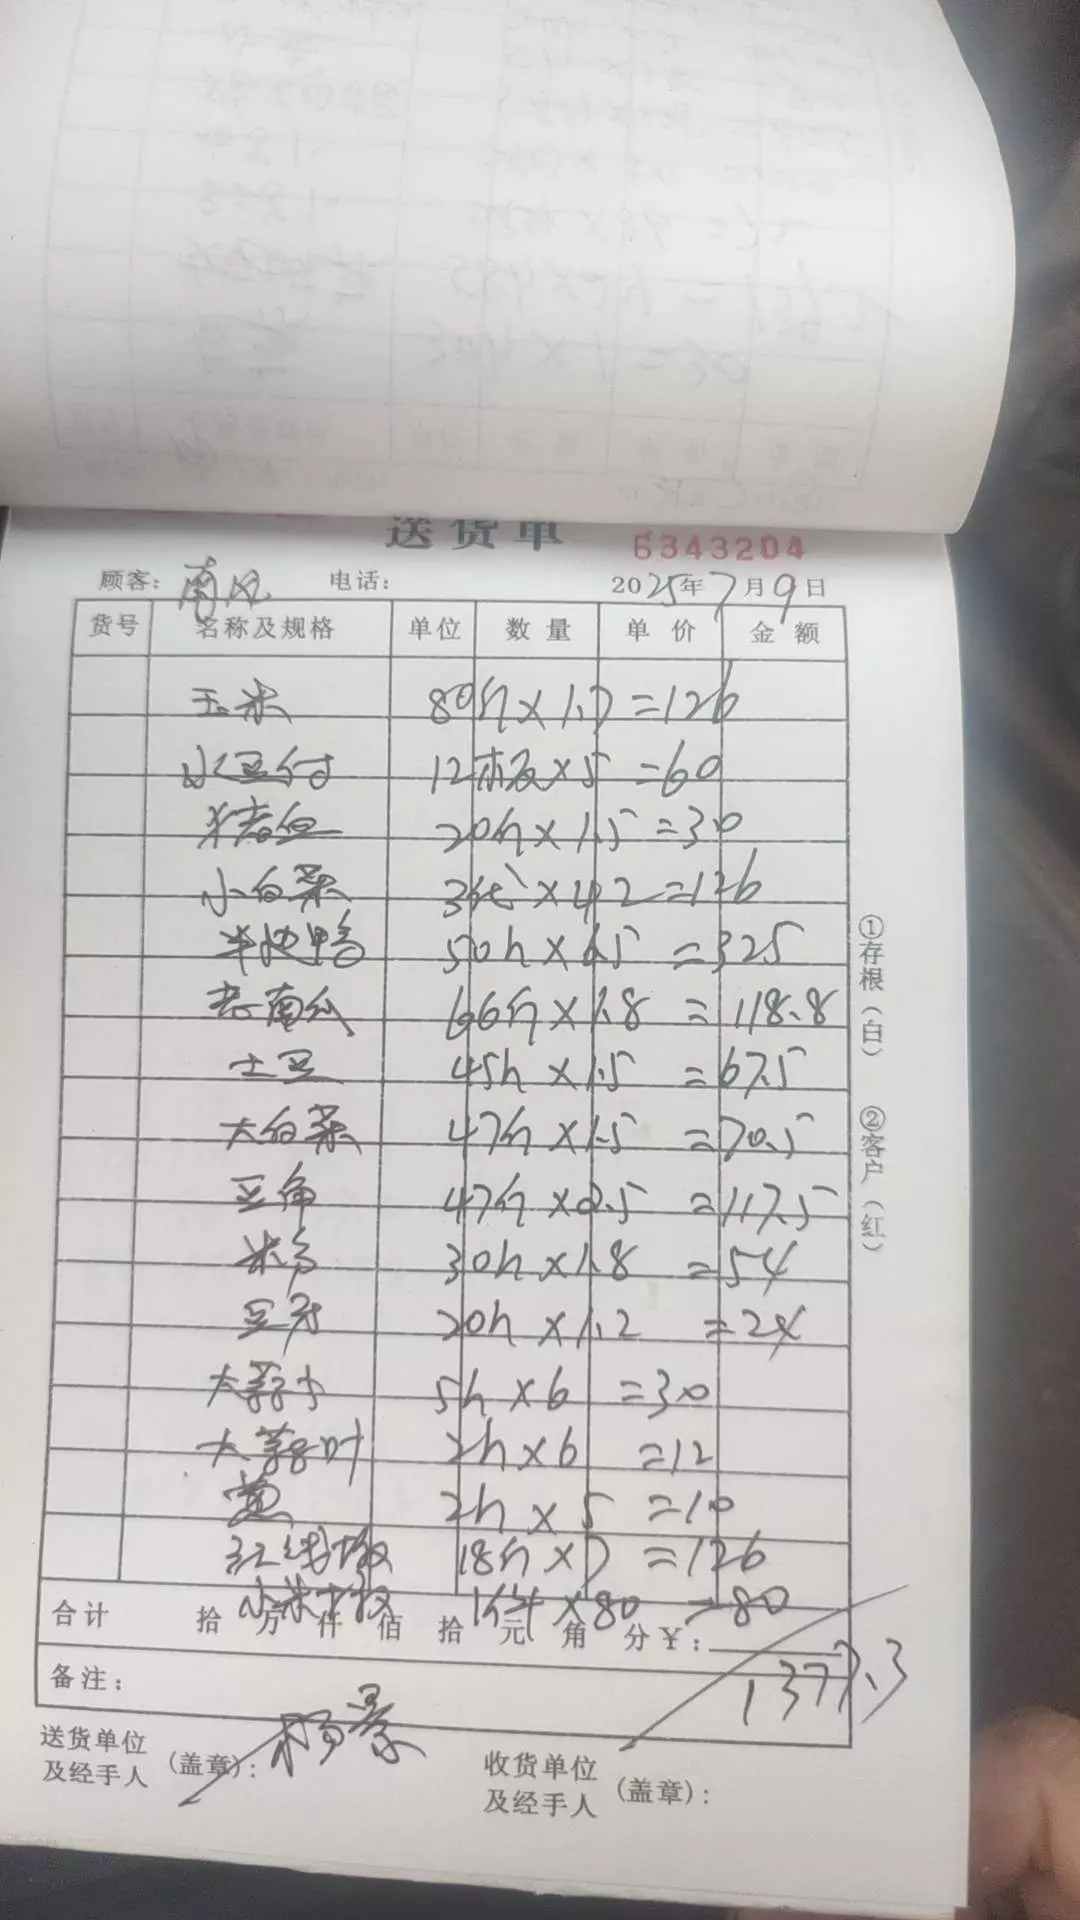 送货单 6343204
顾客：南风 电话： 2025年7月9日
货号 名称及规格 单位 数量 单价 金额
玉米 80斤×1.7=126
水豆付 12板×5=60
猪血 20斤×1.5=30
小白菜 3代×42=126
半边鸭 50斤×6.5=325
老南瓜 66斤×1.8=118.8
土豆 45斤×1.5=67.5
大白菜 47斤×1.5=70.5
豆角 47斤×2.5=117.5
米粉 30斤×1.8=54
豆芽 20斤×1.2=24
大蒜子 5斤×6=30
大蒜叶 2斤×6=12
葱 2斤×5=10
红线椒 18斤×7=126
小米椒 1件×80=80
合计 拾 万 仟 佰 拾 元 角 分 ¥：
1377.3
备注：
送货单位及经手人（盖章）：杨景
收货单位及经手人（盖章）：
①存根（白） ②客户（红）